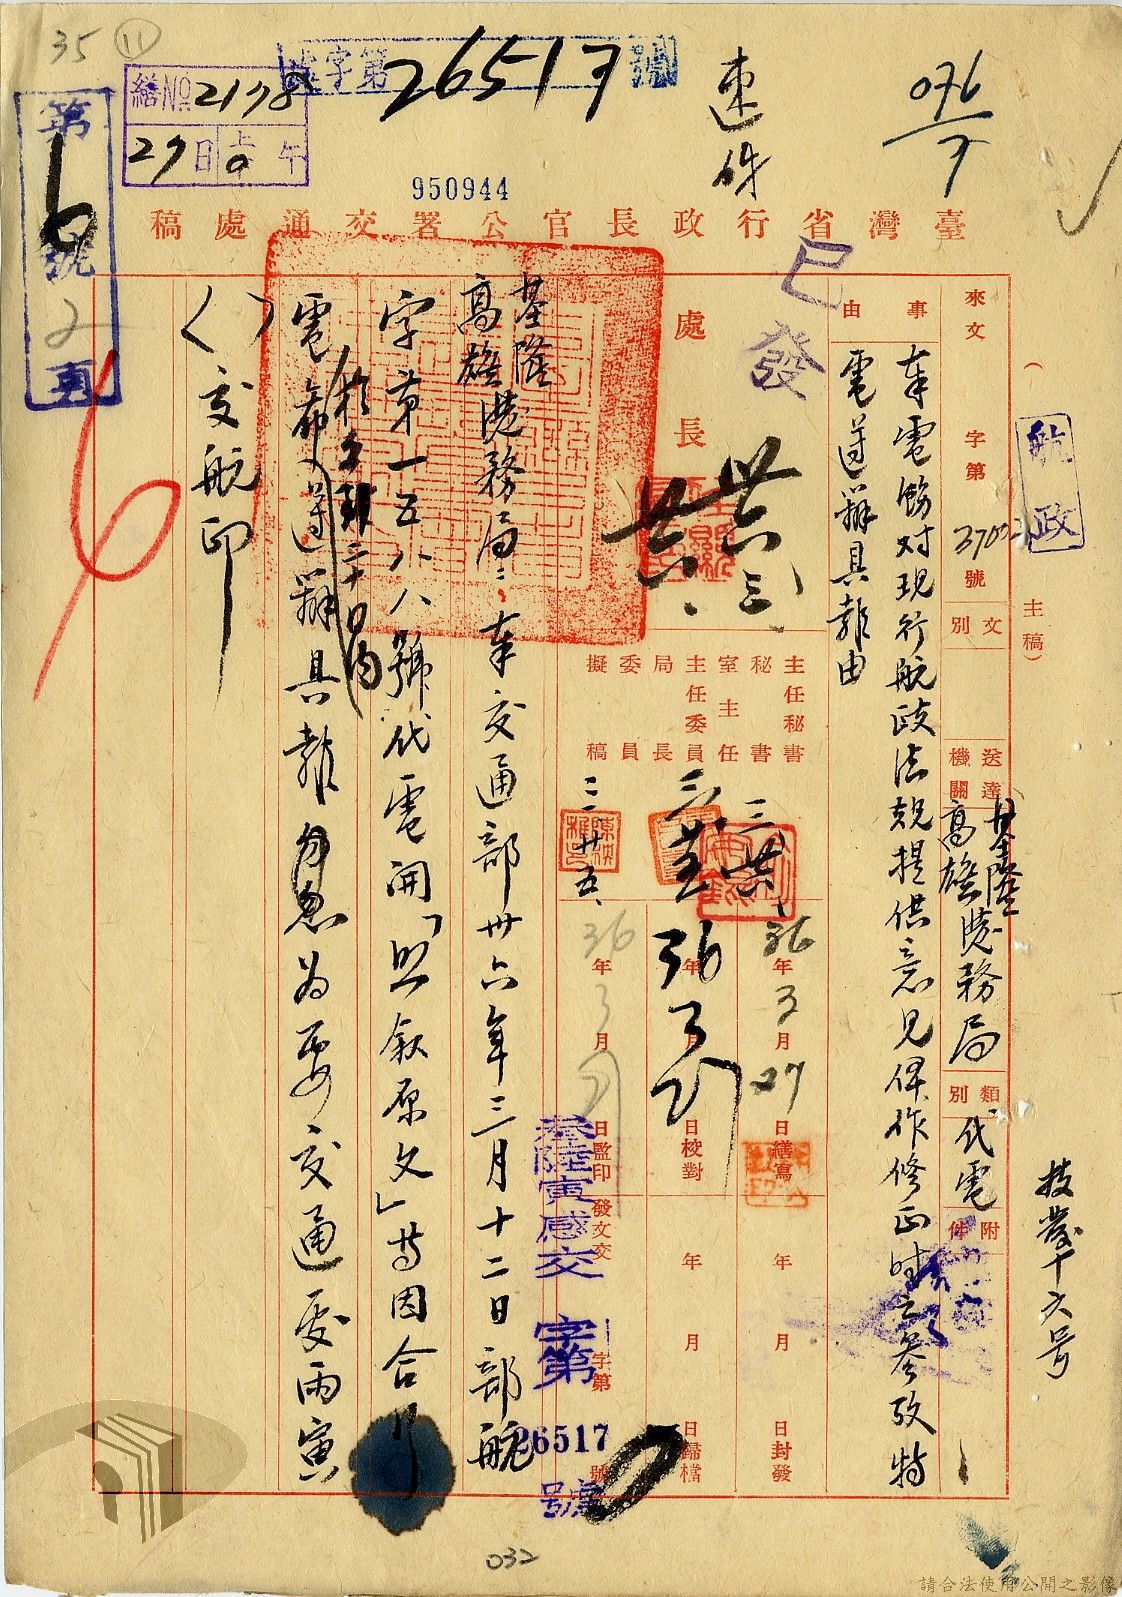 35 11
第6號
繕No 2178
27日上午
字第26517號
速
076
7
950944
臺灣省行政長官公署交通處稿
已發
航政
（主稿）
來文 字第 37002 號
文別
送達機關 基隆高雄港務局
類別 代電
附件
事由
奉電飭対現行航政法規提供意見俾作修正時之參攷特
電遵辦具報由
處長
主任秘書
秘書室主任
主任委員
局長
委員
擬稿
三 廿五
36年3月27日繕寫
年 月 日校對
36年3月 日監印
年 月 日封發
年 月 日歸檔
發文交 字第 號
叁陸寅感交 字第 26517 號
基隆高雄港務局：奉交通部卅六年三月十二日部航
字第一五八八號代電開「照敘原文」等因合行
電希於文到二十日內遵辦具報勿忽為要交通處丙寅
（ ）交航印
032
請合法使用公開之影像